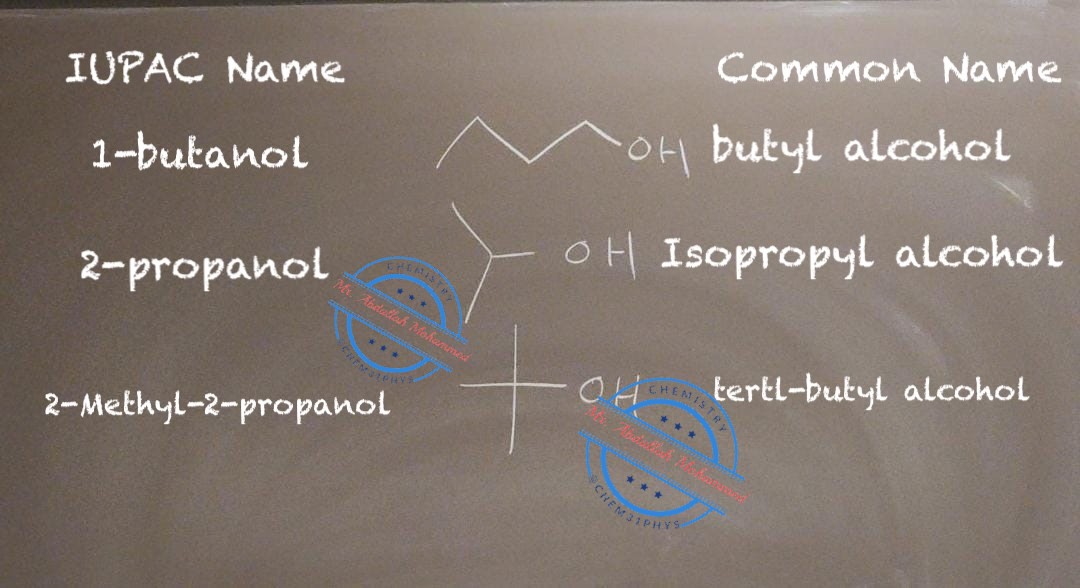 IUPAC Name
Common Name
1-butanol
OH
butyl alcohol
2-propanol
OH
Isopropyl alcohol
CHEMISTRY
Mr. Abdullah Mohammed
@CHEM31PHYS
2-Methyl-2-propanol
OH
tertl-butyl alcohol
CHEMISTRY
Mr. Abdullah Mohammed
@CHEM31PHYS